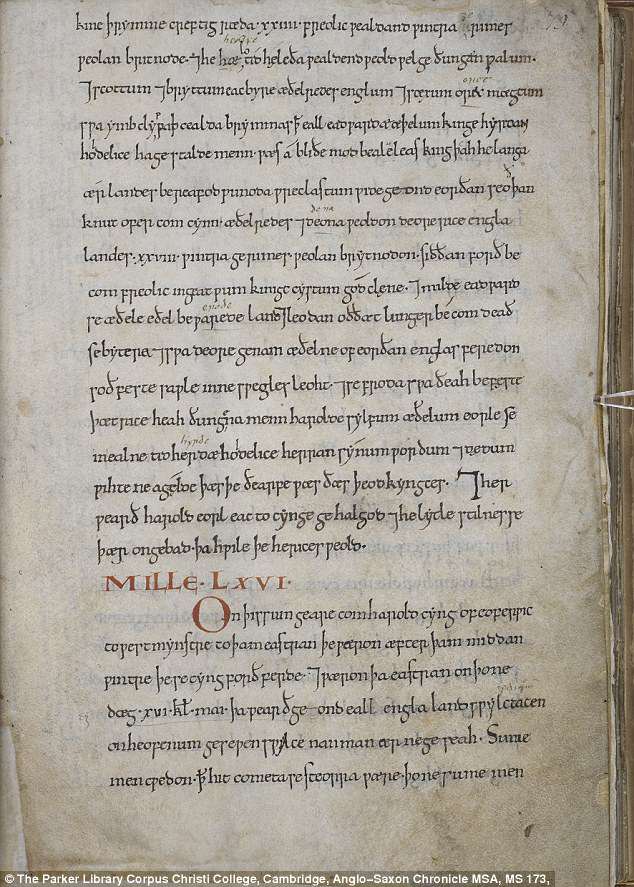 kine þrymme cræftig ræda .xxiiii. freolic ƿealdand ƿintra rimes
ƿeolan britnode. ⁊ he hælo tid heleða ƿealdend ƿeold ƿelge ðungen ƿalum.
⁊ scottum ⁊ bryttum eac byre æðelredes englum ⁊ sexum oret mægcum
sƿa ymb clyppaþ cealda brymmas ꝥ eall eadƿarde æþelum kinge hyrdan
holdelice hagestalde menn. ƿæs á bliðe mod bealeleas king þah he langa
ær landes bereafod ƿunoda ƿreclastum ond eorðan seoðþan
knut ofer com cynn æðelredes ⁊ deona ƿeoldon deore rice engla
landes .xxviii. ƿintra gerimes ƿeolan brytnodon. siððan forð be
com freolic in geatƿum kinigc cystum god clæne. ⁊ milde eadƿard
se æðele eðel beƿarede land ⁊ leodan oððæt lunger becom deað
se bytera ⁊ sƿa deore genam æðelne of eorðan englas feredon
soðfeste saƿle inne sƿegles leoht. ⁊ se froda sƿa ðeah befeste
þæt rice heah ðungna menn harolde sylfum æðelum eorle se
in ealne tid herdæ holdelice herran synum ƿordum ⁊ dedum
ƿihte ne agælde þæs þe ðearfe ƿæs ðæs þeodkyngces. ⁊ her
ƿearð harold eorl eac to cynge gehalgod ⁊ he lytle stilnesse
þær on gebad. þa hƿile þe he rices ƿeold.
MILLE. LXVI.
On þissum geare com harold cyng of eoferƿic
to ƿestmynstre to þam eastran þe ƿæron æfter þam middan
ƿintre þe se cyng forðferde. ⁊ ƿæron þa eastran on þone
dæg .xvi. kł. mai. þa ƿearð geond eall englaland sƿylc tacen
on heofenum geseƿen sƿylce nan man ær ne geseah. Sume
men cƿedon. ꝥ hit cometa se steorra ƿære. þone sume men
© The Parker Library Corpus Christi College, Cambridge, Anglo-Saxon Chronicle MSA, MS 173,